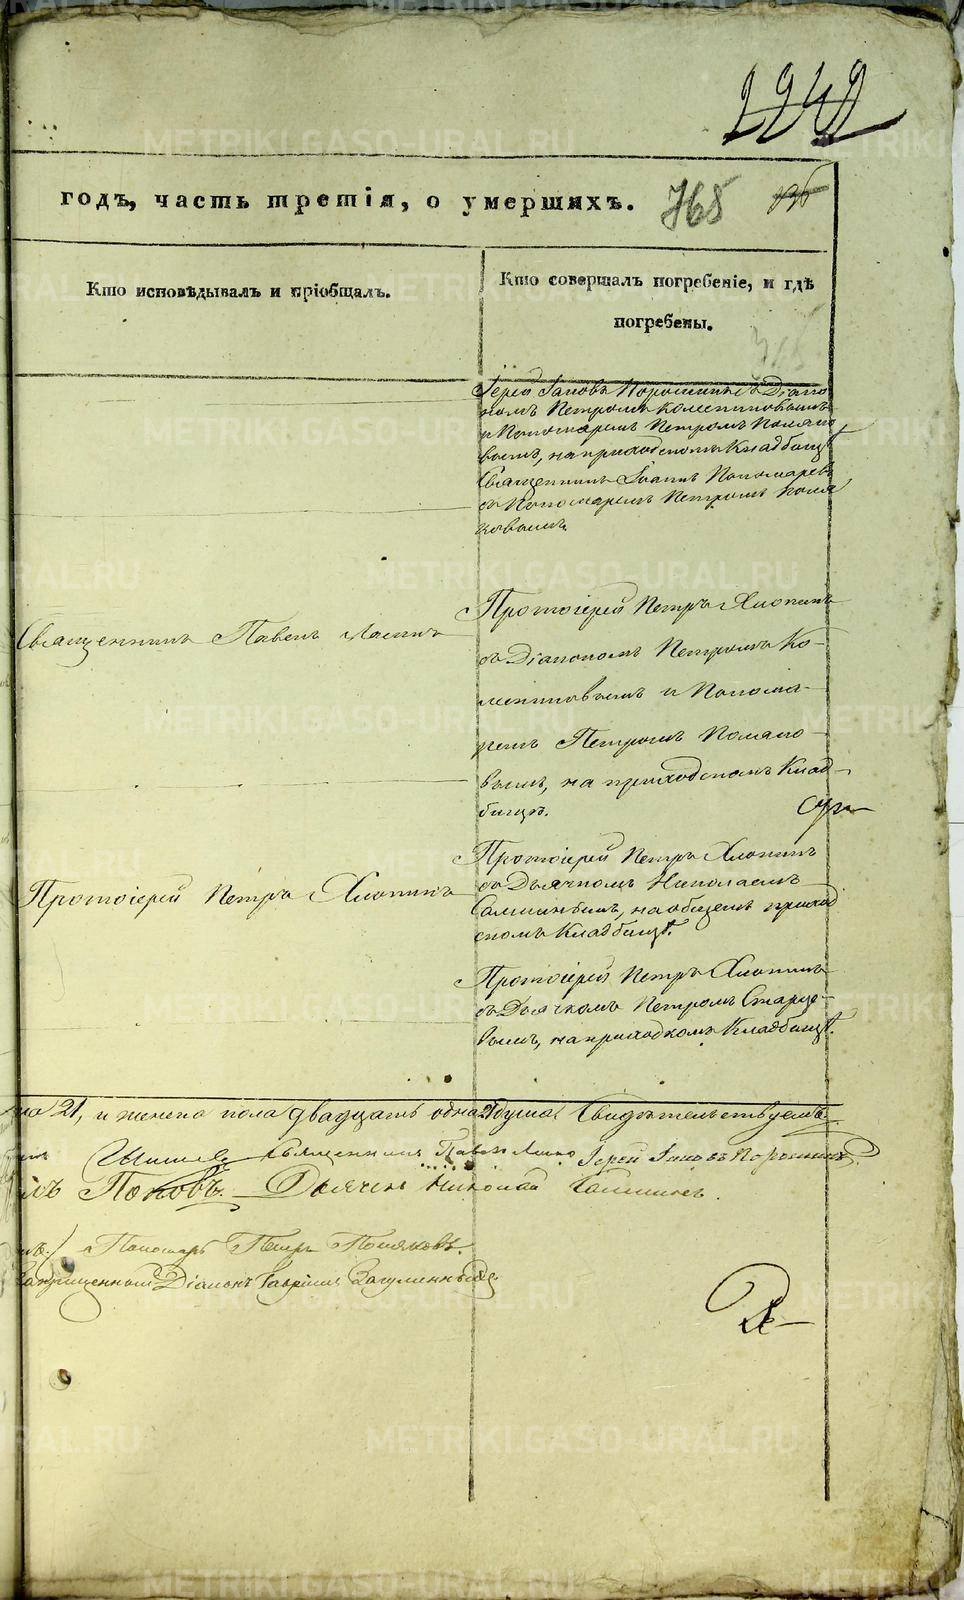 2242
годъ, часть третія, о умершихъ. 768
Кто исповѣдывалъ и пріобщалъ.
Кто совершалъ погребеніе, и гдѣ
погребены.
Іерей Іаковъ Порошинъ съ Діако
номъ Петромъ
и Пономаремъ Петромъ Поляко
вымъ, на приходскомъ Кладбищѣ
Священникъ Іоаннъ Пономаревъ
съ Пономаремъ Петромъ Поля
ковымъ.
Священникъ Павелъ
Протоіерей Петръ Хлопинъ
съ Діакономъ Петромъ Ко-
и Понома-
ремъ Петромъ Поляко-
вымъ, на приходскомъ Клад-
бищѣ.
Протоіерей Петръ Хлопинъ
Протоіерей Петръ Хлопинъ
съ Дьячкомъ Николаемъ
на общемъ приход
скомъ Кладбищѣ.
Протоіерей Петръ Хлопинъ
съ Дьячкомъ Петромъ Старце-
вымъ, на приходкомъ Кладбищѣ.
21, и женска пола двадцать одна 21 душа Свидѣтельствуемъ
Священникъ Павелъ Іерей Іаковъ Порошинъ
Поповъ. Дьячекъ Николай
Пономарь Петръ Поляковъ.
Діаконъ Гавріилъ
METRIKI.GASO-URAL.RU